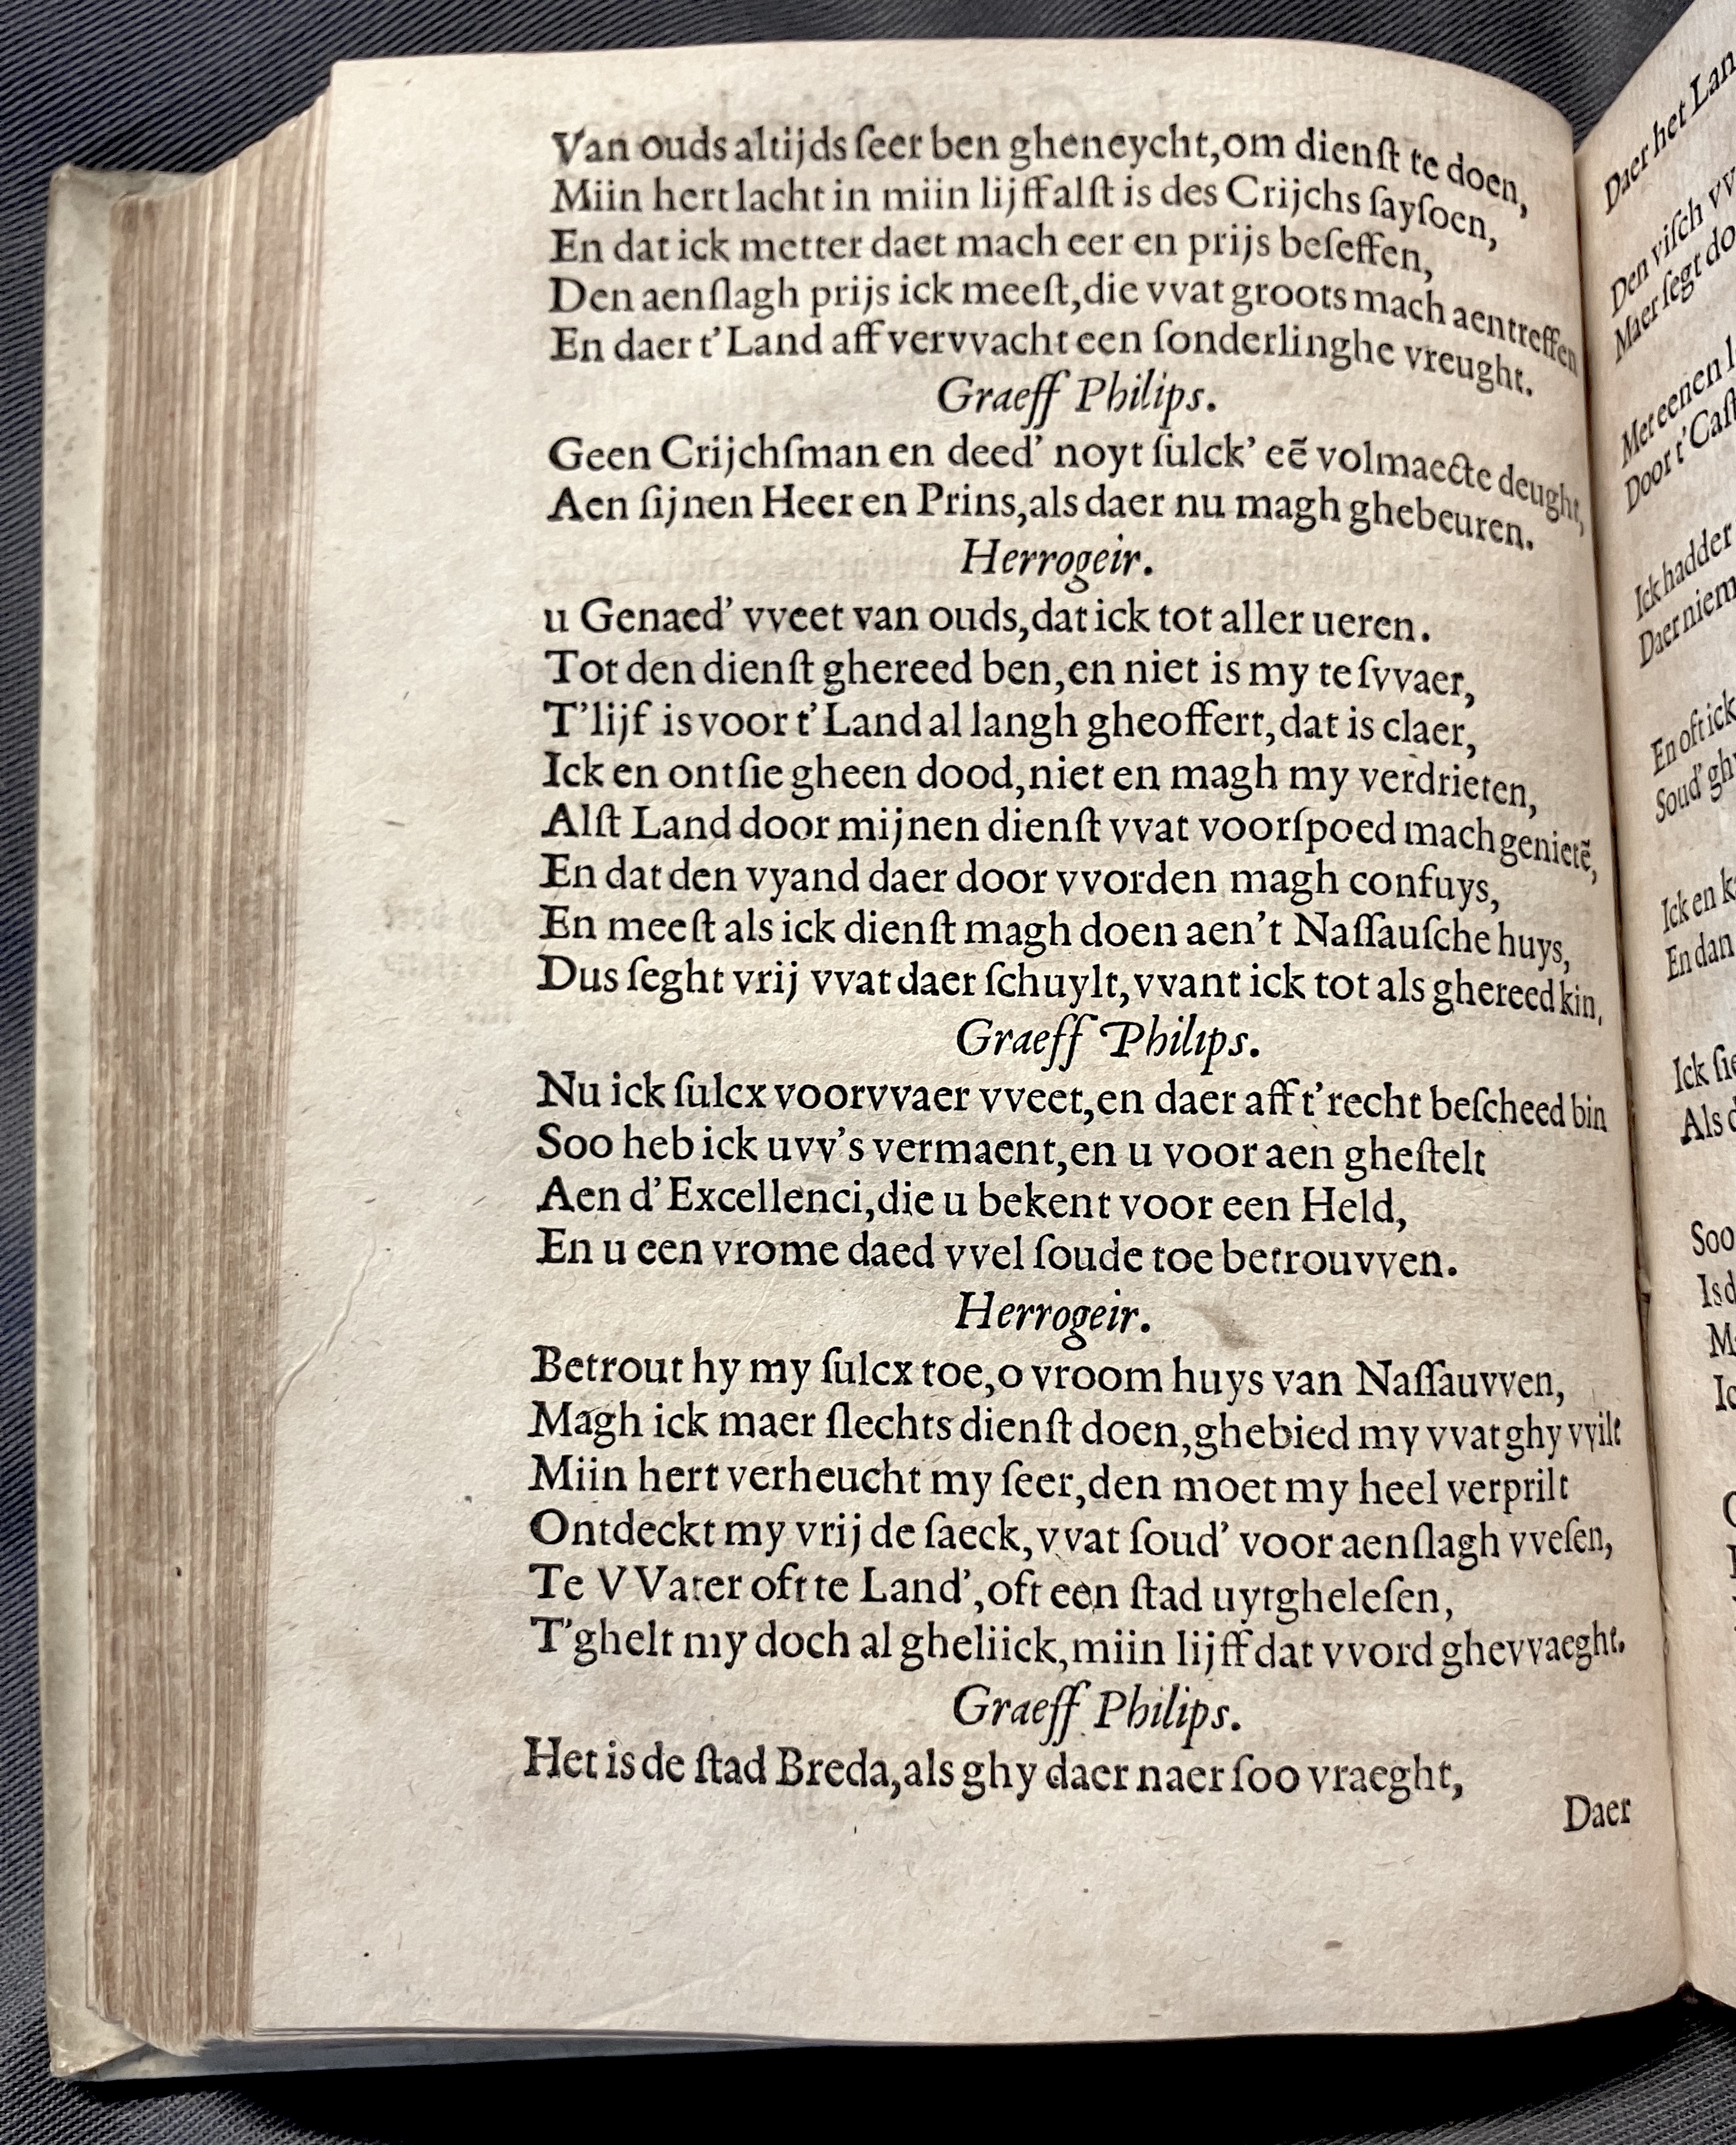 Van ouds altijds ſeer ben gheneycht, om dienſt te doen,
Miin hert lacht in miin lijff alſt is des Crijchs ſayſoen,
En dat ick metter daet mach eer en prijs beſeffen,
Den aenſlagh prijs ick meeſt, die vvat groots mach aentreffen
En daer t'Land aff vervvacht een ſonderlinghe vreught.
Graeff Philips.
Geen Crijchſman en deed' noyt ſulck' eẽ volmaecte deught,
Aen ſijnen Heer en Prins, als daer nu magh ghebeuren.
Herrogeir.
u Genaed' vveet van ouds, dat ick tot aller ueren.
Tot den dienſt ghereed ben, en niet is my te ſvvaer,
T'lijf is voor t'Land al langh gheoffert, dat is claer,
Ick en ontſie gheen dood, niet en magh my verdrieten,
Alſt Land door mijnen dienſt vvat voorſpoed mach genietẽ,
En dat den vyand daer door vvorden magh confuys,
En meeſt als ick dienſt magh doen aen't Naſſauſche huys,
Dus ſeght vrij vvat daer ſchuylt, vvant ick tot als ghereed kin,
Graeff Philips.
Nu ick ſulcx voorvvaer vveet, en daer aff t'recht beſcheed bin
Soo heb ick uvv's vermaent, en u voor aen gheſtelt
Aen d'Excellenci, die u bekent voor een Held,
En u een vrome daed vvel ſoude toe betrouvven.
Herrogeir.
Betrout hy my ſulcx toe, o vroom huys van Naſſauvven,
Magh ick maer ſlechts dienſt doen, ghebied my vvat ghy vvilt
Miin hert verheucht my ſeer, den moet my heel verprilt
Ontdeckt my vrij de ſaeck, vvat ſoud' voor aenſlagh vveſen,
Te VVater oft te Land', oft een ſtad uytgheleſen,
T'ghelt my doch al gheliick, miin lijff dat vvord ghevvaeght.
Graeff Philips.
Het is de ſtad Breda, als ghy daer naer ſoo vraeght,
Daer
Daer het Lan
Den viſch vv
Maer ſegt do
Met eenen l
Door t'Caſt
Ick hadder
Daer niem
En oft ick
Soud' ghy
Ick en k
En dan
Ick ſie
Als d
Soo
Is d